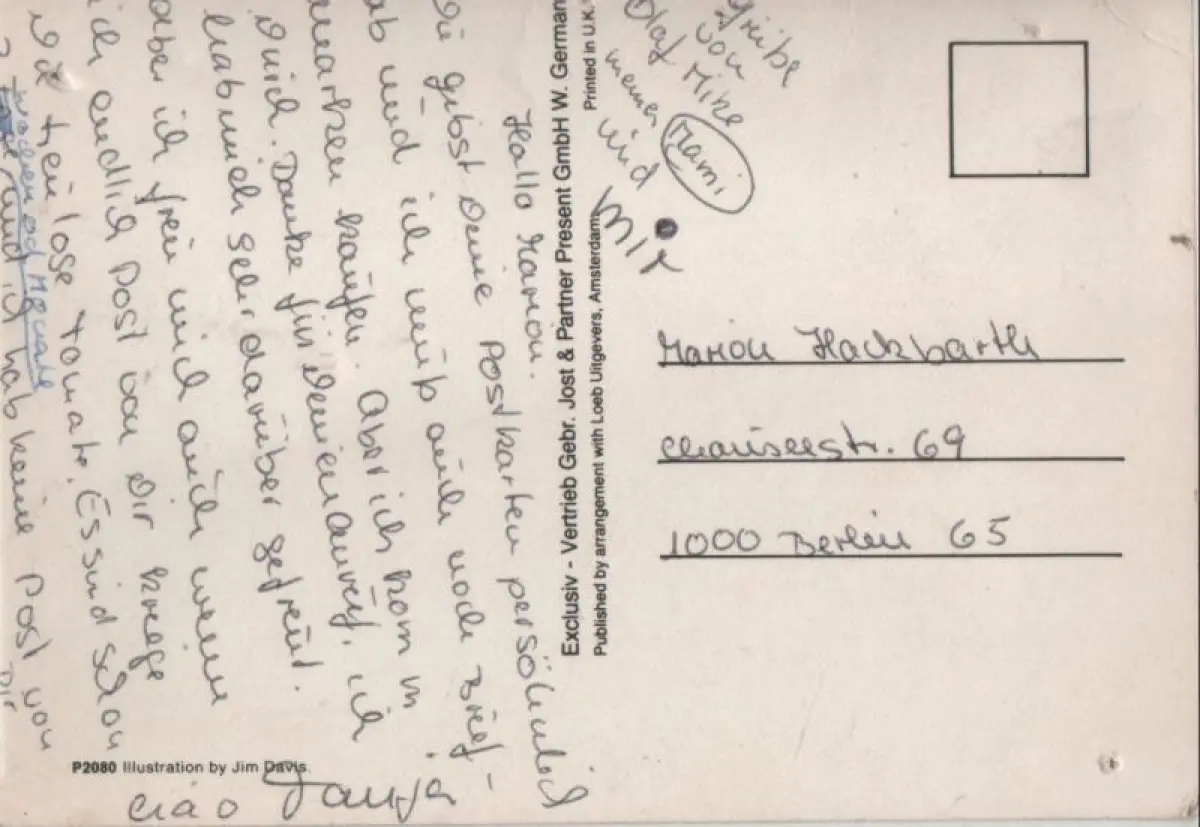 Hallo Marion.
Du gibst Deine Postkarten persöhnlich
ab und ich muß auch noch Brief-
marken kaufen. Aber ich kom in
Durich. Danke für Deinen Anruf, ich
hab mich sehr darüber gefreut.
aber ich freu mich auch wenn
ich endlich Post von Dir kriege
treulose Tomate. Es sind schon
2 und ich hab keine Post von
Dir
ciao Tanja
Grüße
von
Olaf Mike
meiner Mami
und
Mir
Exclusiv - Vertrieb Gebr. Jost & Partner Present GmbH W. German
Printed in U.K.
Published by arrangement with Loeb Uitgevers, Amsterdam
Marion Hackbarth
Chausseestr. 69
1000 Berlin 65
P2080 Illustration by Jim Davis.